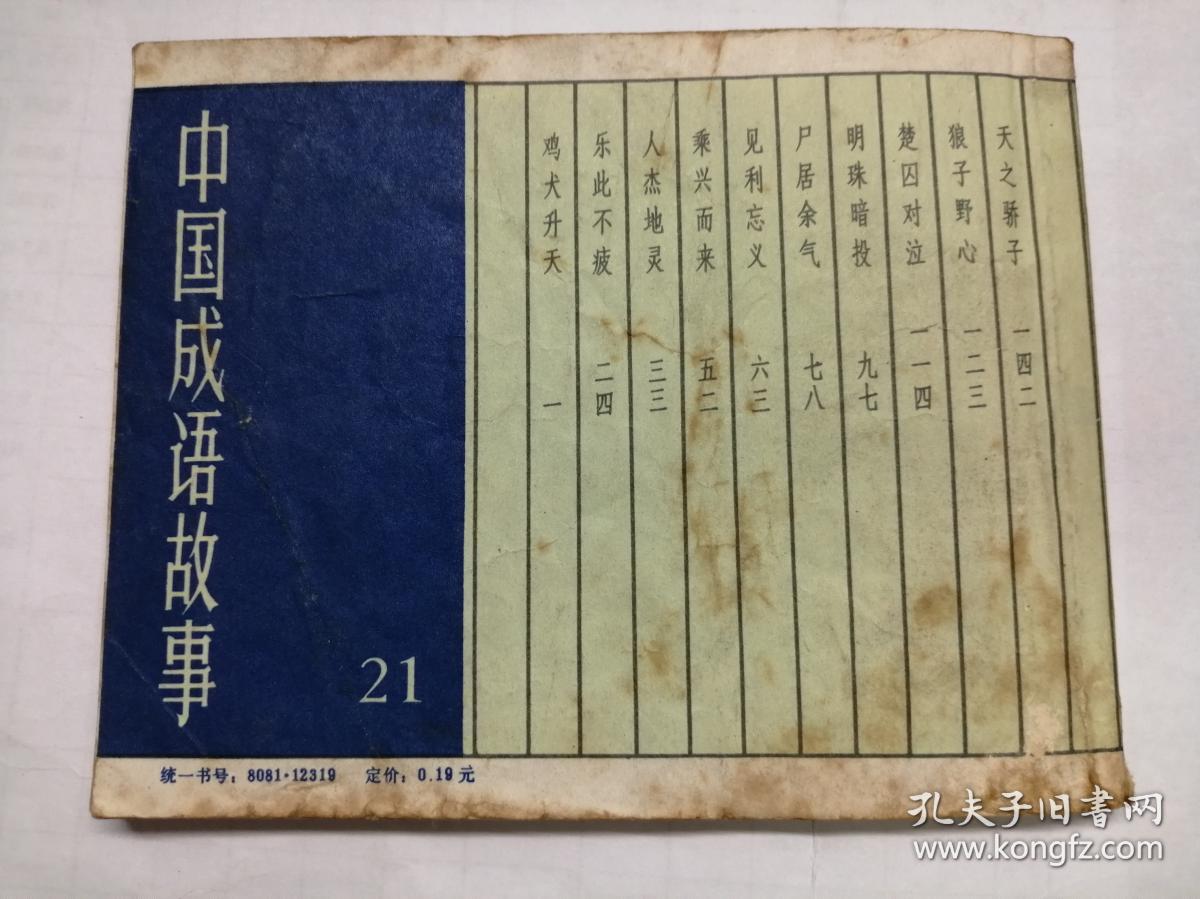 中国成语故事
21
鸡犬升天 一
乐此不疲 二四
人杰地灵 三三
乘兴而来 五二
见利忘义 六三
尸居余气 七八
明珠暗投 九七
楚囚对泣 一一四
狼子野心 一二三
天之骄子 一四二
统一书号：8081·12319 定价：0.19元
孔夫子旧书网
www.kongfz.com